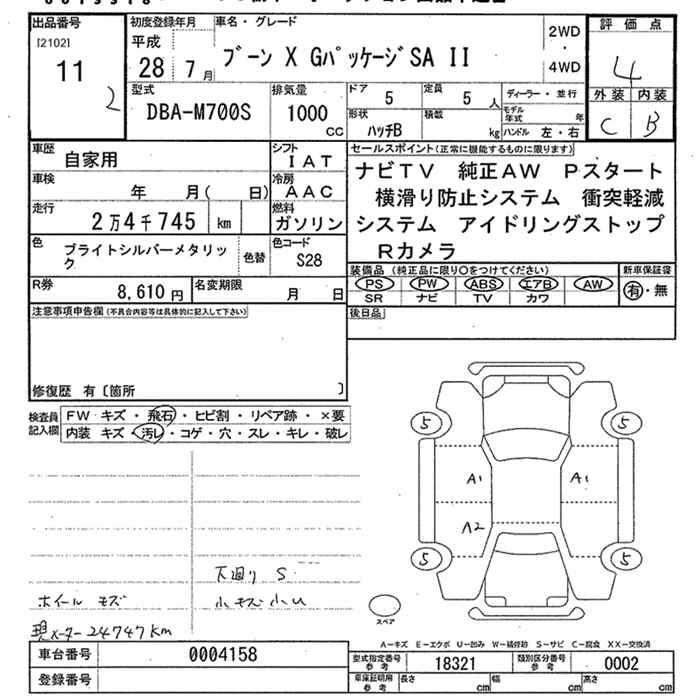 出品番号
[2102]
11
2
初度登録年月
平成
28年7月
車名・グレード
ブーン X GパッケージSA II
2WD
・
4WD
評価点
4
外装 内装
C B
型式
DBA-M700S
排気量
1000
cc
ドア
5
定員
5人
ディーラー・並行
形状
ハッチB
積載
kg
モデル年式 年
ハンドル 左・右
車歴
自家用
シフト
IAT
車検
年 月( 日)
冷房
AAC
走行
2万4千745 km
燃料
ガソリン
色
ブライトシルバーメタリック
色替
色コード
S28
R券
8,610円
名変期限
月 日
セールスポイント(正常に機能するものに限ります)
ナビTV 純正AW Pスタート
横滑り防止システム 衝突軽減
システム アイドリングストップ
Rカメラ
装備品 (純正品に限り○をつけてください)
PS PW ABS エアB AW
SR ナビ TV カワ
新車保証書
有・無
後日品
注意事項申告欄(不具合内容等は具体的に記入して下さい)
修復歴 有〔箇所 〕
検査員記入欄
FW キズ・飛石・ヒビ割・リペア跡・×要
内装 キズ・汚レ・コゲ・穴・スレ・キレ・破レ
5 5
A1 A1
A2
5 5
スペア
下廻り S
ホイール キズ
小キズ小U
現メーター24747Km
A-キズ E-エクボ U-凹み W-補修跡 S-サビ C-腐食 XX-交換済
車台番号
0004158
登録番号
型式指定番号
参考
18321
類別区分番号
参考
0002
車庫証明用
参考
長さ cm
幅 cm
高さ cm